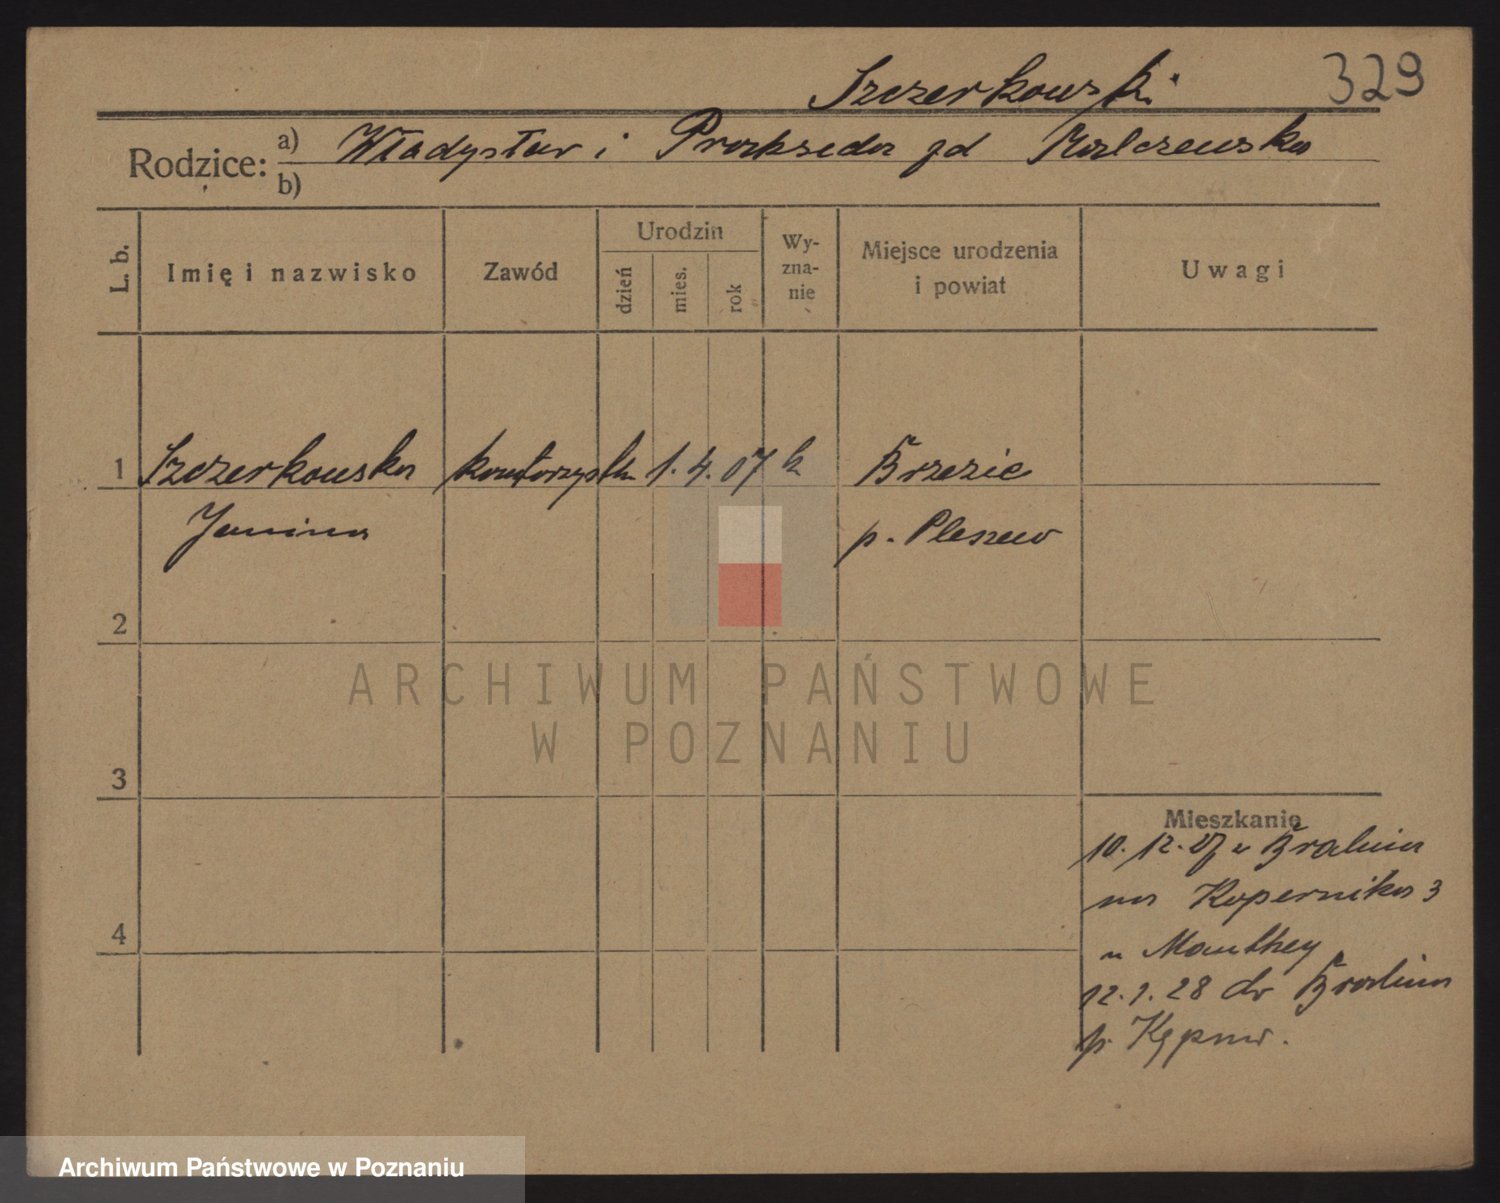 329
Szczerkowski
Rodzice: a) Władysław i Prakseda zd Kalczewska
b)
L. b.
Imię i nazwisko
Zawód
Urodzin
dzień
mies.
rok
Wy-
zna-
nie
Miejsce urodzenia
i powiat
Uwagi
1 Szczerkowska kontorzystka 1. 4. 07 k Brzezie
Janina p. Pleszew
2
3
4
Mieszkanie
10. 12. 27 z Bralina
na Kopernika 3
u Manthey
12. 1. 28 do Bralina
p. Kępno.
ARCHIWUM PAŃSTWOWE
W POZNANIU
Archiwum Państwowe w Poznaniu